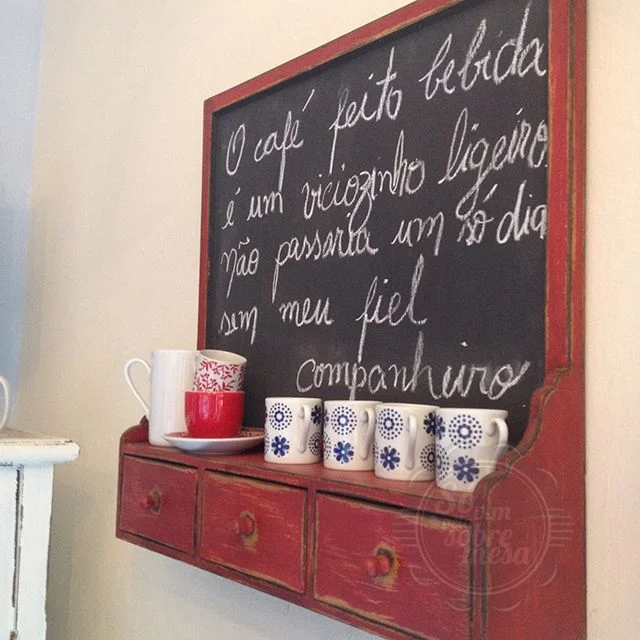 O café feito bebida
é um viciozinho ligeiro
não passaria um só dia
sem meu fiel
companheiro
Só
bom
sobre
mesa